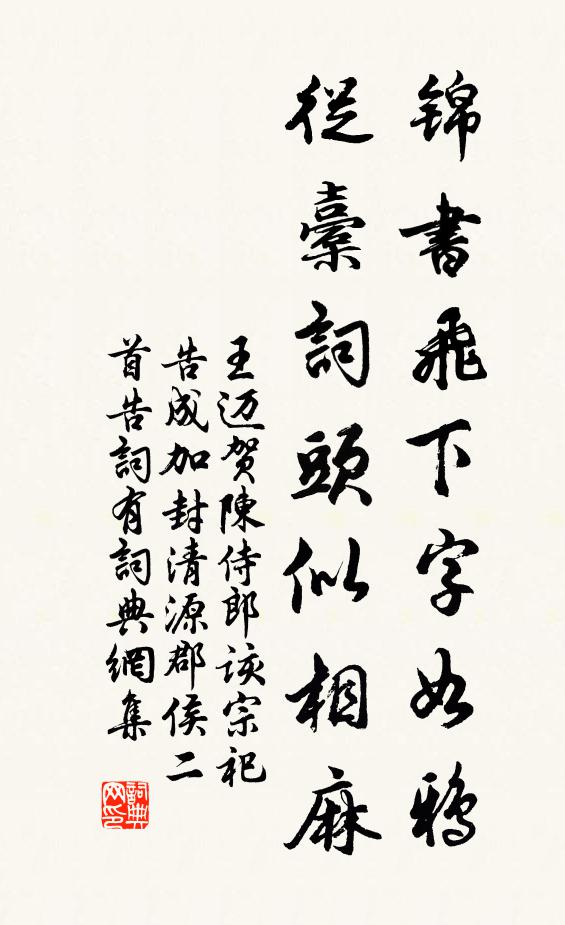 锦書飛下字如鴉
從稾詞頭似相麻
王迈贺陳侍郎該宗祀
告成加封清源郡侯二
首告詞有詞典網集
詞典
网印